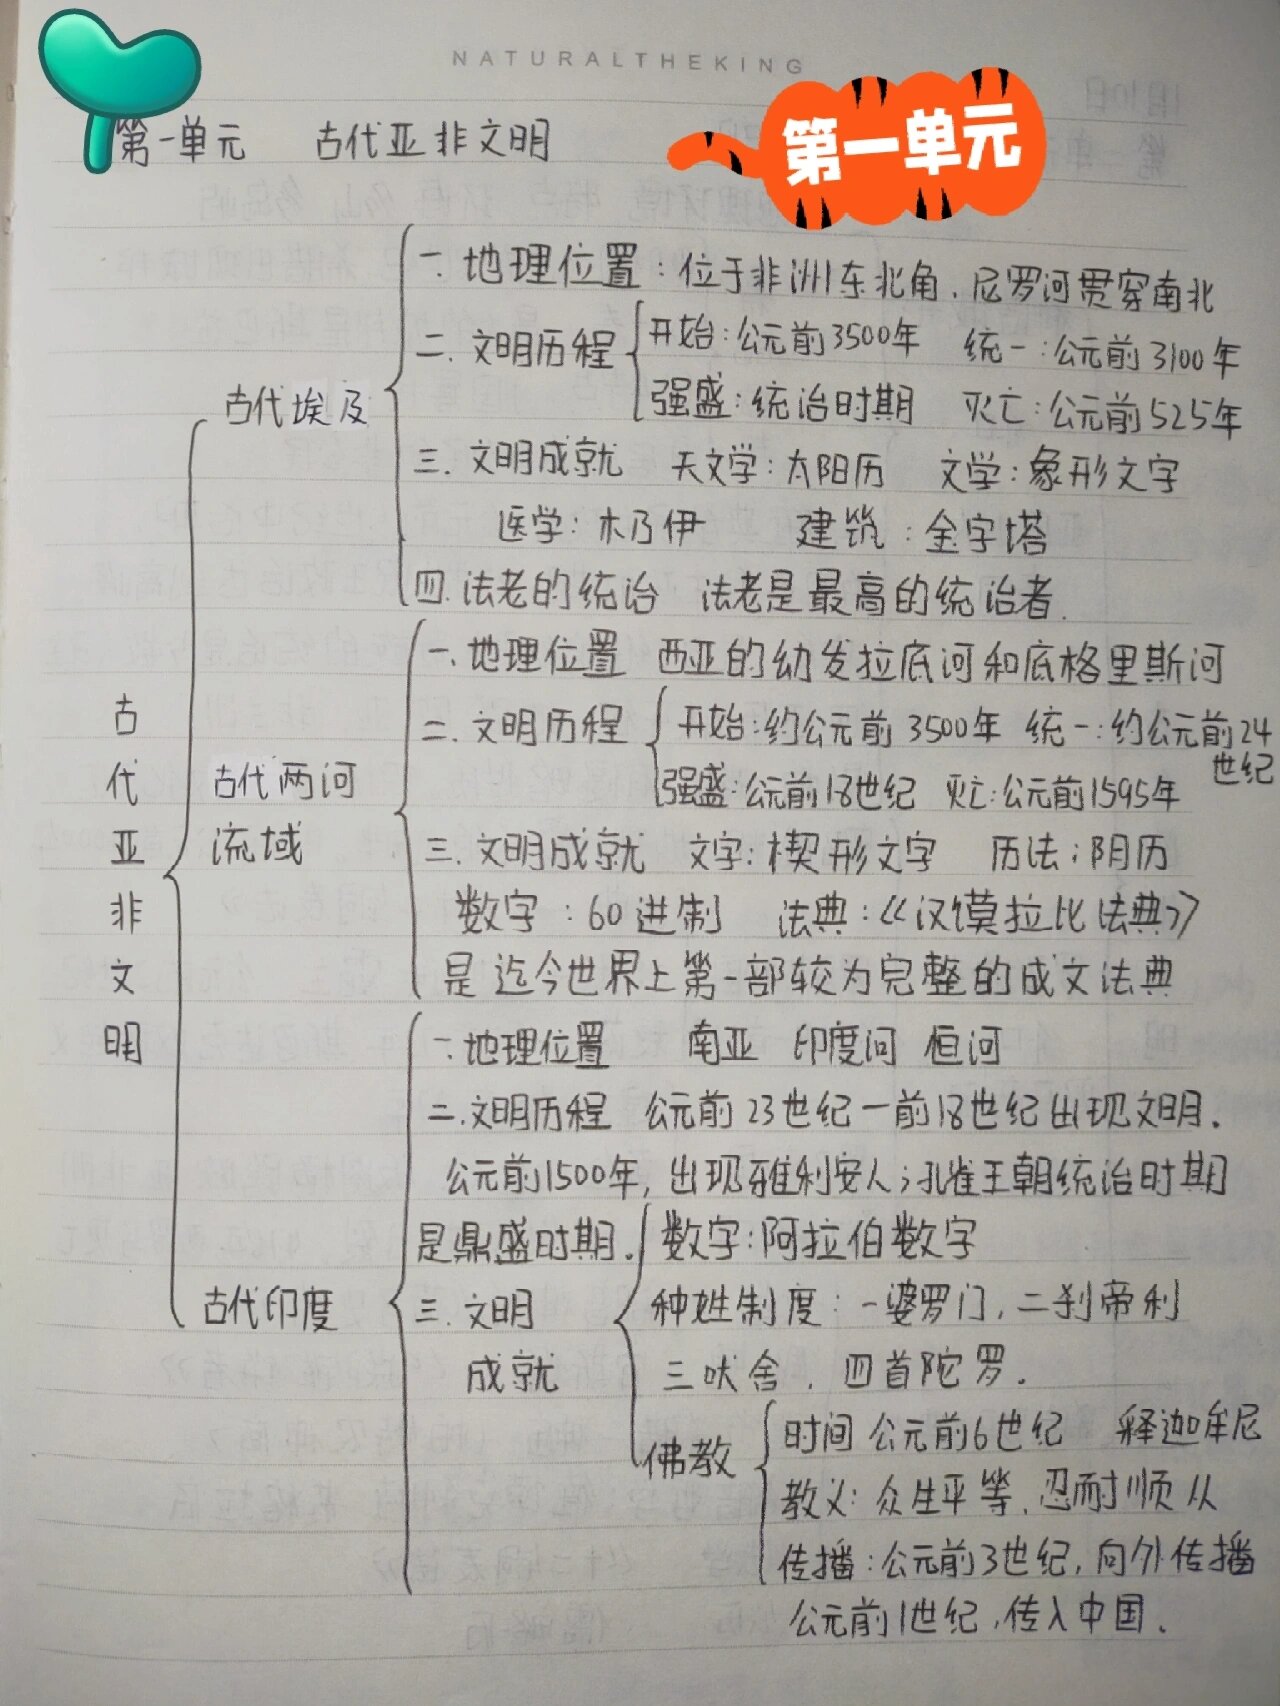 NATURALTHEKING
第一单元 古代亚非文明
第一单元
古代亚非文明
古代埃及
一、地理位置：位于非洲东北角、尼罗河贯穿南北
二、文明历程
开始：公元前3500年 统一：公元前3100年
强盛：统治时期 灭亡：公元前525年
三、文明成就 天文学：太阳历 文学：象形文字
医学：木乃伊 建筑：金字塔
四、法老的统治 法老是最高的统治者.
古代两河
流域
一、地理位置 西亚的幼发拉底河和底格里斯河
二、文明历程
开始：约公元前3500年 统一：约公元前24
世纪
强盛：公元前18世纪 灭亡：公元前1595年
三、文明成就 文字：楔形文字 历法：阴历
数字：60进制 法典：《汉馍拉比法典》
是迄今世界上第一部较为完整的成文法典
古代印度
一、地理位置 南亚 印度河 恒河
二、文明历程 公元前23世纪一前18世纪出现文明.
公元前1500年，出现雅利安人；孔雀王朝统治时期
是鼎盛时期.
三、文明
成就
数字：阿拉伯数字
种姓制度：一婆罗门，二刹帝利
三吠舍、四首陀罗.
佛教
时间 公元前6世纪 释迦牟尼
教义：众生平等、忍耐顺从
传播：公元前3世纪，向外传播
公元前1世纪，传入中国.